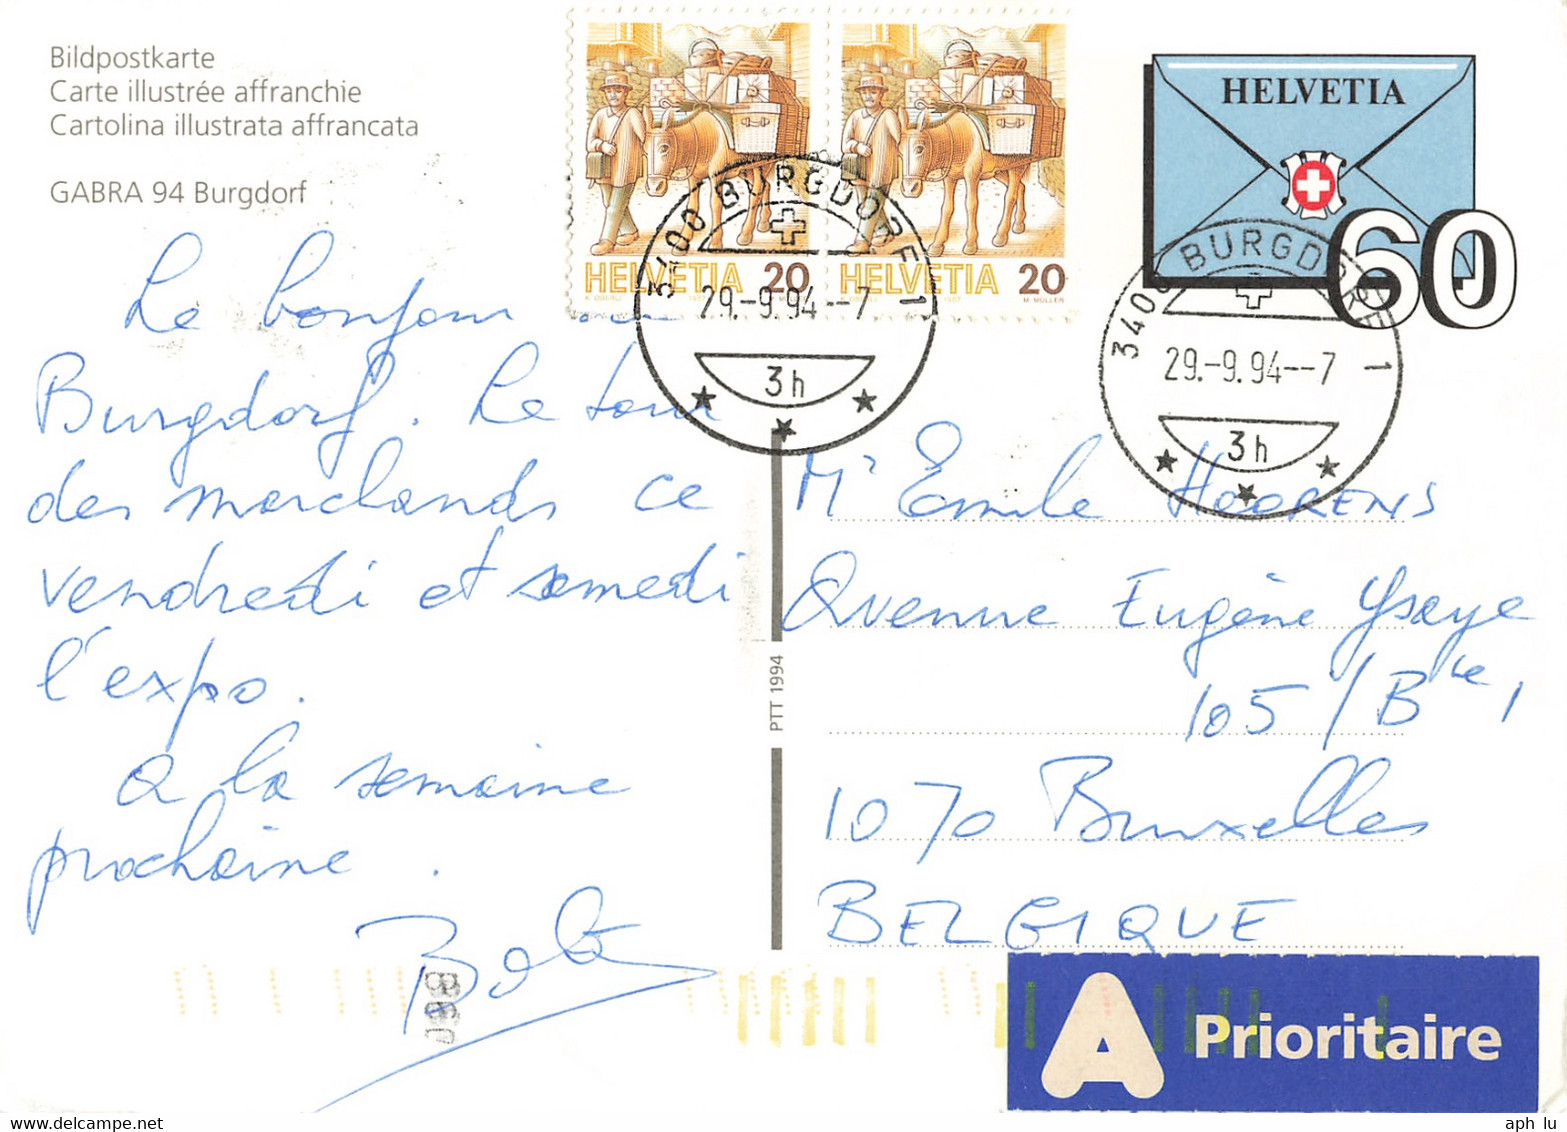 Bildpostkarte
Carte illustrée affranchie
Cartolina illustrata affrancata
GABRA 94 Burgdorf
HELVETIA 20
K. OBERLI 1987 M. MÜLLER
HELVETIA 20
K. OBERLI 1987 M. MÜLLER
HELVETIA
60
3400 BURGDORF 1
29.-9.94--7
3h
3400 BURGDORF 1
29.-9.94--7
3h
Le bonjour
Burgdorf. Le tour
des marchands ce
vendredi et samedi
l'expo.
A la semaine
prochaine.
PTT 1994
Mr Emile HOORENS
Avenue Eugène Ysaye
105/Bte 1
1070 Bruxelles
BELGIQUE
A Prioritaire
aph_lu